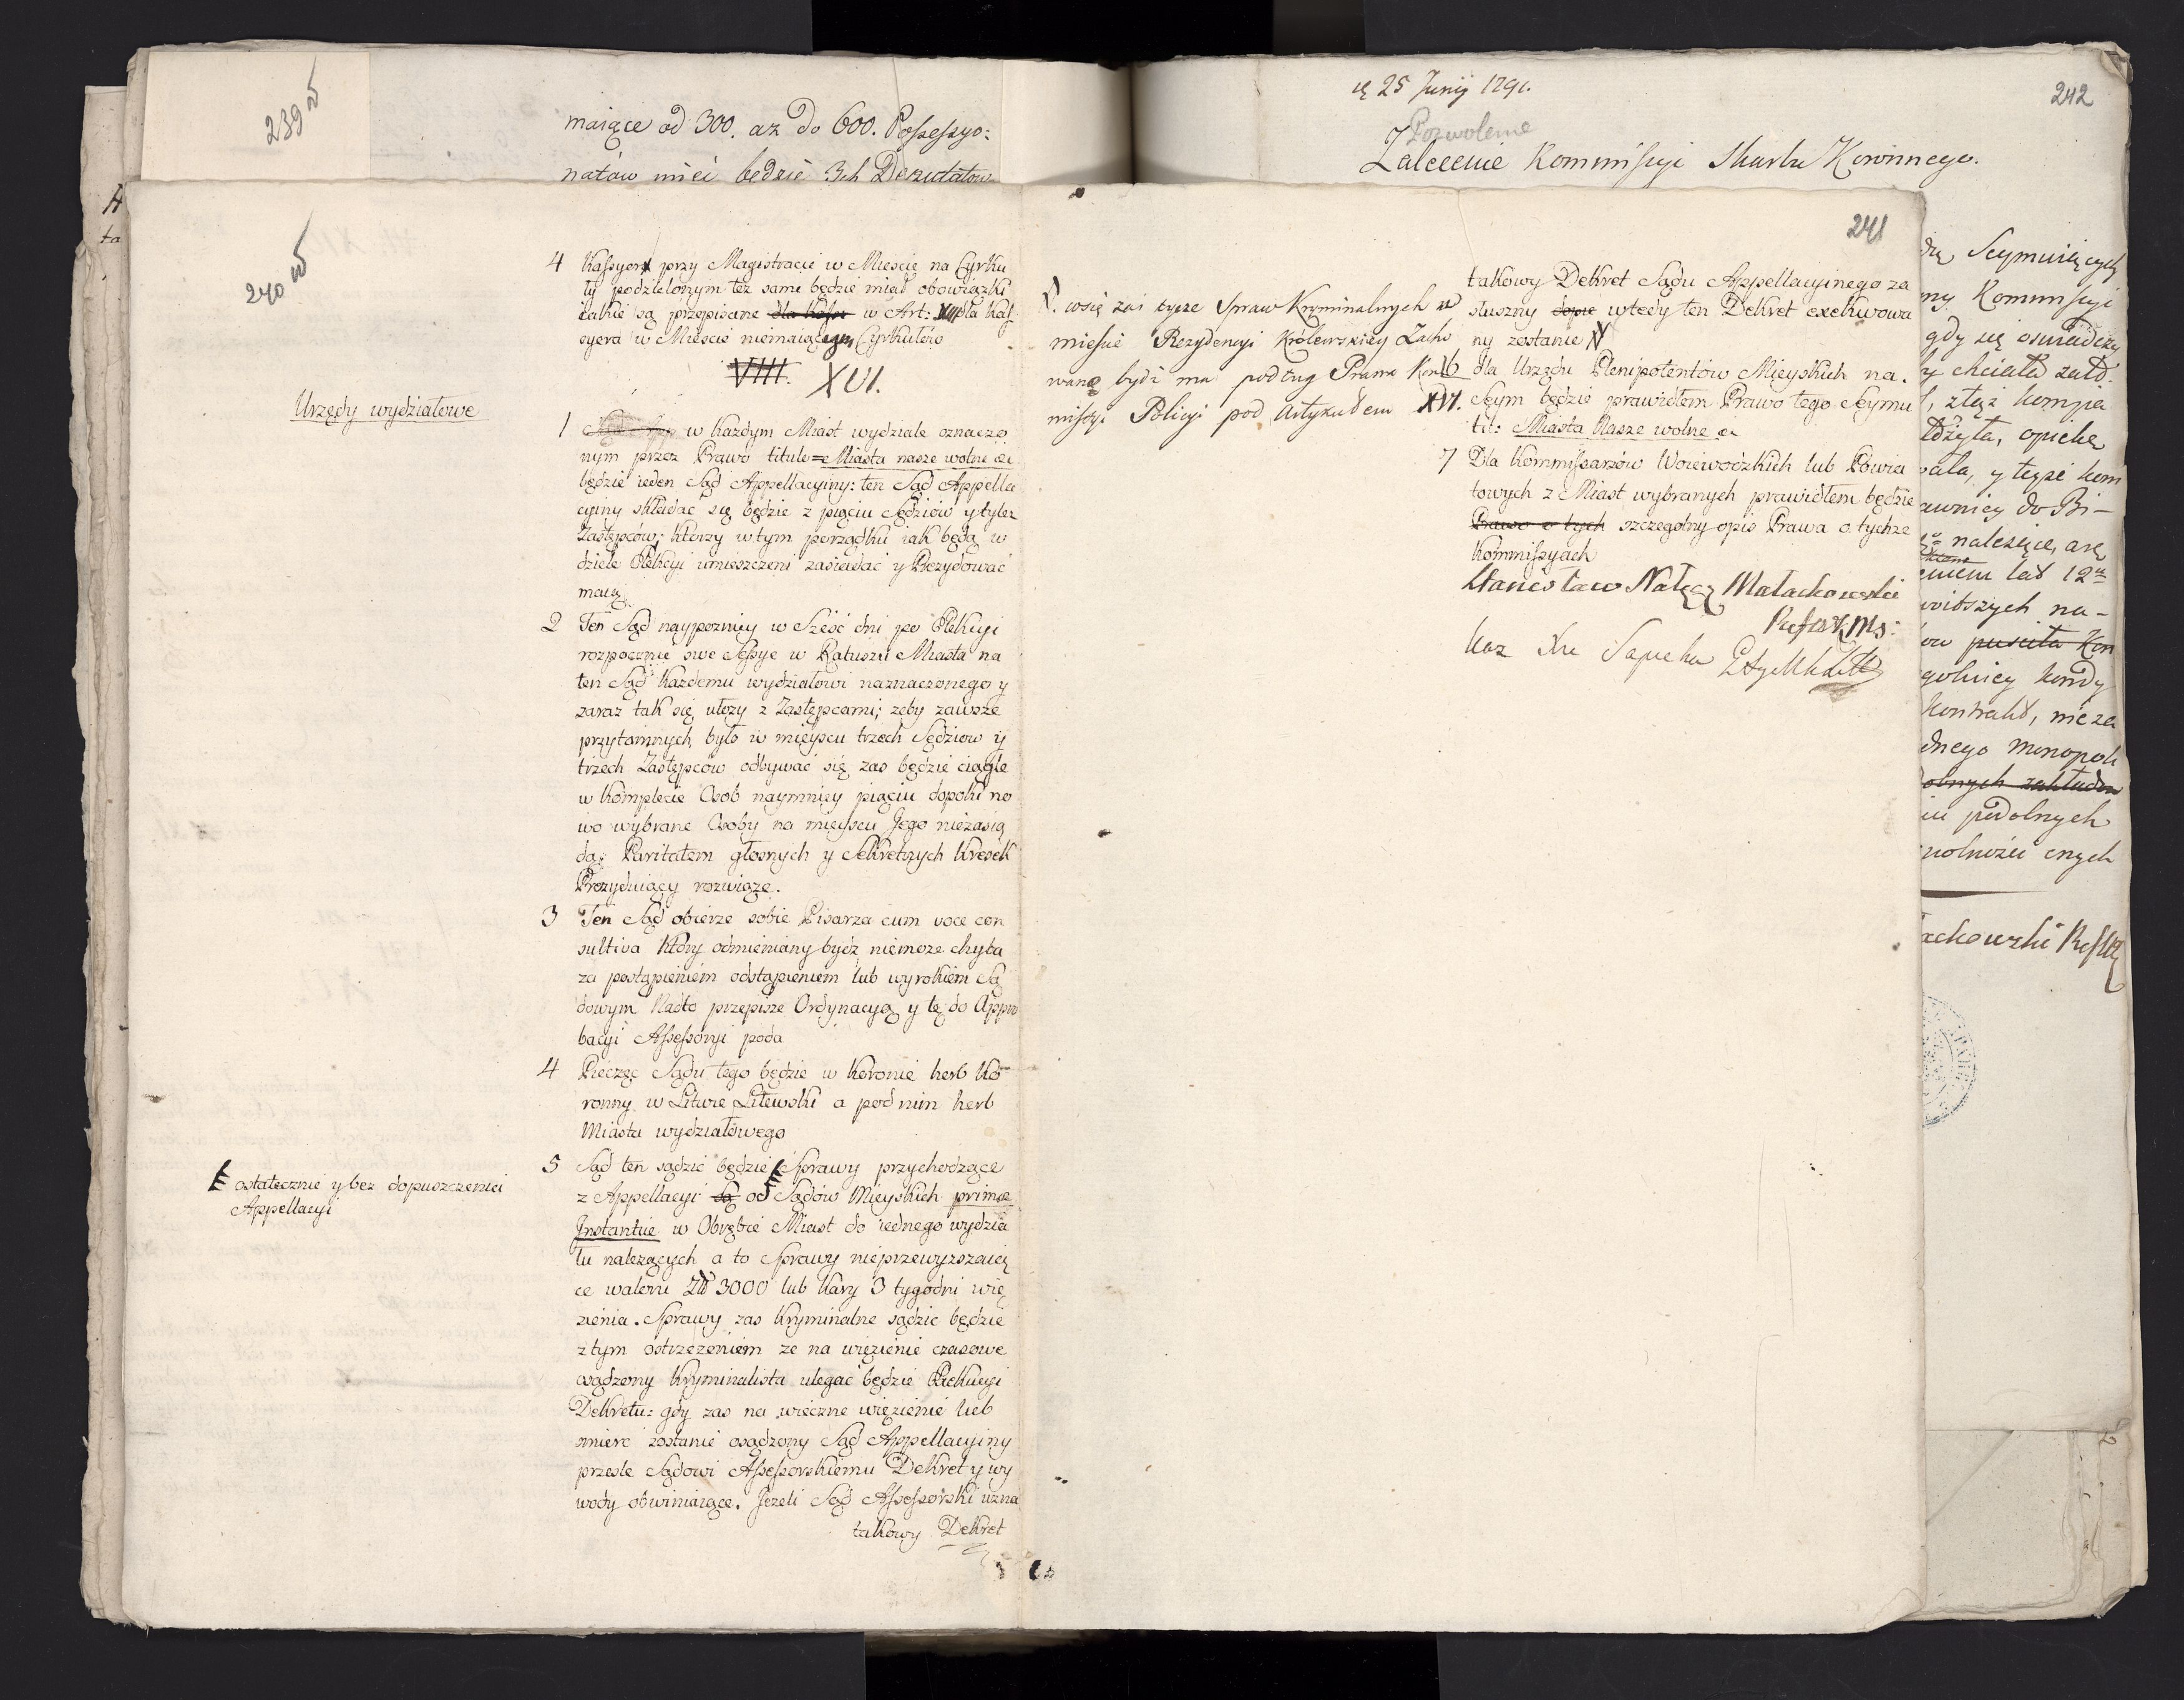 239v
maiące od 300. aż do 600. Possessyo:
natów mieć będzie 3ch Deputatów
240v
4 Kassyer przy Magistracie w Mieście na Cyrku
ły podzielonym też same będzie miał obowiązki
iakie są przepisane dla Kassy w Art: XIII dla Kas
syera w Mieście niemaiącym Cyrkułów
VIII. XVI.
Urzędy wydziałowe
1 w każdym Miast wydziale oznaczo
nym przez Prawo titulo=Miasta nasze wolne &
będzie ieden Sąd Appellacyiny: ten Sąd Appella
cyiny składać się będzie z pięciu Sędziów y tyleż
Zastępców; którzy w tym porządku iak będą w
dziele Elekcyi umieszczeni zasiadać y Prezydować
maią.
2 Ten Sąd naypozniey w Sześć dni po Elekcyi
rozpocznie swe Sessye w Ratuszu Miasta na
ten Sąd Każdemu wydziałowi naznaczonego y
zaraz tak się ułoży z Zastępcami; żeby zawsze
przytomnych było w mieyscu trzech Sędziow y
trzech Zastępców odbywać się zas będzie ciągle
w Komplecie Osob naymniey pięciu dopoki no
wo wybrane Osoby na mieyscu Jego niezasią
dą; Paritatem głosnych y Sekretnych Kresek
Prezyduiący rozwiąże.
3 Ten Sąd obierze sobie Pisarza cum voce con
sultiva który odmieniany bydz niemoze chyba
za postąpieniem odstąpieniem lub wyrokiem Są
dowym Nadto przepisze Ordynacyą y tę do Appro
bacyi Assessoryi poda
4 Pieczęc Sądu tego będzie w Koronie herb Ko
ronny w Litwie Litewski a pod nim herb
Miasta wydziałowego
5 Sąd ten sądzić będzie Sprawy przychodzące
z Appellacyi Są od Sądów Mieyskich primæ
Instantiæ w Obrębie Miast do iednego wydzia
łu nalezących a to Sprawy nieprzewyzszaią
ce waloru Zł 3000 lub Kary 3 tygodni wię
zienia. Sprawy zas Kryminalne sądzic będzie
z tym ostrzezeniem ze na więzienie czasowe
osądzony Kryminalista ulegac będzie Exekucyi
Dekretu: gdy zas na wieczne więzienie lub
smierc zostanie osądzony Sąd Appellacyiny
przesle Sądowi Assessorskiemu Dekret y wy
wody obwiniaiące. Jezeli Sąd Assessorski uzna
takowy Dekret
ostatecznie y bez dopuszczenia
Appellacyi
241
V. co się zaś tycze Spraw Kryminalnych w
mieście Rezydencyi Królewskiey Zacho
wane bydź ma podług Prawa Kom
missyi Policyi pod Artykułem XVI.
takowy Dekret Sądu Appellacyinego za
słuszny dopie wtedy ten Dekret exekwowa
ny zostanie V
6 dla Urzędu Plenipotentów Mieyskich na.
Seym będzie prawidłem Prawo tego Seymu
tit: Miasta Nasze wolne &
7 Dla Kommissarzów Woiewodzkich lub Powia
towych z Miast wybranych prawidłem będzie
Prawo o tych szczegolny opis Prawa o tychze
Kommissyach
Stanisław Nałęcz Małachowski
Kaz Xże Sapieha
242
25 Junij 1791.
Pozwolenie
Zalecenie Kommissyi Skarbu Koronnego.
Seymuiących
Kommissyi
gdy się oswiadczy
chciała
z teyż kompa
opiekę
y teyże kom
należące,
lat 12
na-
kondy
kontrakt, nie za
dnego monopoli
podobnych
onych